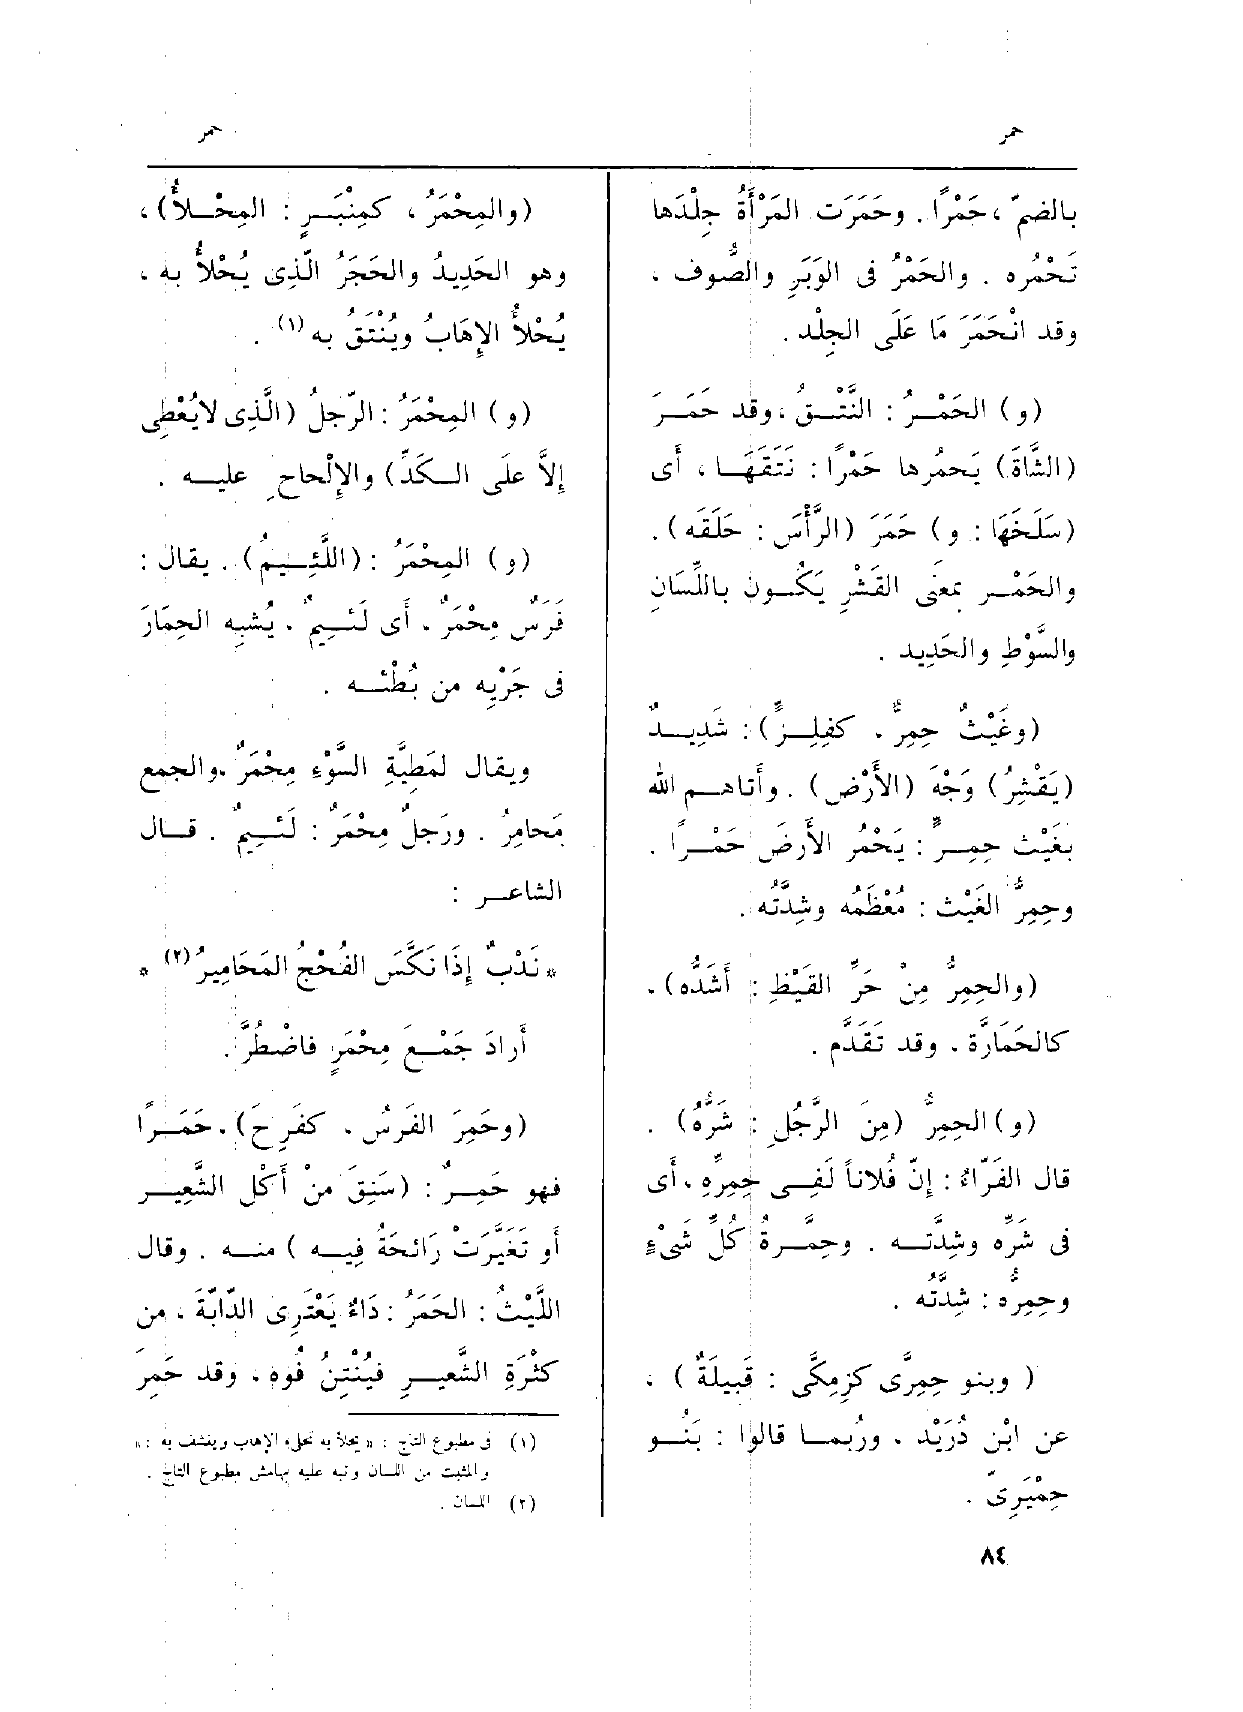 حمر
حمر
بالضمّ ، حَمْرًا . وحَمَرَت المَرْأَةُ جِلْدَها
تَحْمُره . والحَمْرُ فى الوَبَرِ والصُّوف ،
وقد انْحَمَرَ مَا عَلَى الجِلْد .
(و) الحَمْرُ : النَّتْقُ ، وقد حَمَرَ
(الشَّاةَ) يَحمُرها حَمْرًا : نَتَقَهَا ، أَى
(سَلَخَهَا : و) حَمَرَ (الرَّأْسَ : حَلَقَه) .
والحَمْر بمعنَى القَشْرِ يَكُون باللِّسَانِ
والسَّوْطِ والحَدِيد .
(وغَيْثٌ حِمِرٌّ ، كفِلِزٍّ) : شَدِيدٌ
(يَقْشِرُ) وَجْهَ (الأَرْضِ) . وأَتاهم الله
بغَيْث حِمِرٍّ : يَحْمُر الأَرضَ حَمْرًا .
وحِمِرُّ الغَيْث : مُعْظَمُه وشِدَّتُه .
(والحِمِرُّ مِنْ حَرِّ القَيْظِ : أَشَدُّه) ،
كالحَمَارَّة ، وقد تَقَدَّم .
(و) الحِمِرُّ (مِنَ الرَّجُلِ : شَرُّهُ) .
قال الفَرّاءُ : إِنّ فُلاناً لَفِى حِمِرِّهِ ، أَى
فى شَرِّه وشِدَّته . وحِمَّرةُ كُلِّ شَىْءٍ
وحِمِرُّه : شِدّتُه .
( وبنو حِمِرَّى كزِمِكَّى : قَبِيلَةٌ ) ،
عن ابْن دُرَيْد ، ورُبما قالوا : بَنُو
حِمْيَرِىّ .
(والمِحْمَرُ ، كمِنْبَرٍ : المِحْلأُ) ،
وهو الحَدِيدُ والحَجَرُ الّذِى يُحْلأُ به ،
يُحْلأُ الإِهَابُ ويُنْتَقُ به (١) .
(و) المِحْمَرُ : الرّجلُ (الَّذِى لايُعْطِى
إِلاَّ علَى الكَدِّ) والإِلْحاحِ عليه .
(و) المِحْمَرُ : (اللَّئِيمُ) . يقال :
فَرَسٌ مِحْمَرٌ ، أَى لَئِيمٌ ، يُشبِه الحِمَارَ
فى جَرْيِه من بُطْئه .
ويقال لمَطِيَّةِ السَّوْءِ مِحْمَرٌ ، والجمع
مَحامِرُ . ورَجلٌ مِحْمَرٌ : لَئِيمٌ . قال
الشاعر :
* نَدْبٌ إِذَا نَكَّسَ الفُحْجُ المَحَامِيرُ (٢) *
أَرادَ جَمْعَ مِحْمَرٍ فاضْطُرَّ .
(وحَمِرَ الفَرَسُ ، كفَرِحَ) ، حَمَرًا
فهو حَمِرٌ : (سَنِقَ مِنْ أَكْلِ الشَّعِيرِ
أَو تَغَيَّرَتْ رَائحَةُ فِيه ) منه . وقال
اللَّيْثُ : الحَمَرُ : دَاءٌ يَعْتَرِى الدّابّةَ ، من
كَثْرَةِ الشَّعِيرِ فيُنْتِنُ فُوه ، وقد حَمِرَ
(١) فى مطبوع التاج : « يحلأ به تحلىء الإهاب وينشف به : »
والمثبت من اللسان ونبه عليه بهامش مطبوع التاج .
(٢) اللسان .
٨٤